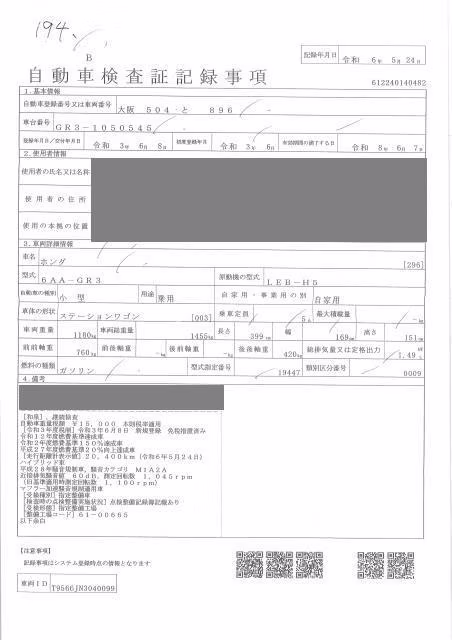 194.
B
記録年月日 令和 6年 5月 24日
自動車検査証記録事項
612240140482
1.基本情報
自動車登録番号又は車両番号 大阪 504 と 896
車台番号 GR3-1050545
登録年月日/交付年月日 令和 3年 6月 8日 初度登録年月 令和 3年 6月 有効期間の満了する日 令和 8年 6月 7日
2.使用者情報
使用者の氏名又は名称
使用者の住所
使用の本拠の位置
3.車両詳細情報
車名 ホンダ [296]
型式 6AA-GR3 原動機の型式 LEB-H5
自動車の種別 小型 用途 乗用 自家用・事業用の別 自家用
車体の形状 ステーションワゴン [003] 乗車定員 5人 最大積載量 -kg
車両重量 1180kg 車両総重量 1455kg 長さ 399cm 幅 169cm 高さ 151cm
前前軸重 760kg 前後軸重 -kg 後前軸重 -kg 後後軸重 420kg 総排気量又は定格出力 1.49L
燃料の種類 ガソリン 型式指定番号 19447 類別区分番号 0009
4.備考
[和泉],継続検査
自動車重量税額 ¥15,000 本則税率適用
[令和3年度税制] 令和3年6月8日 新規登録 免税措置済み
令和12年度燃費基準達成車
令和2年度燃費基準150%達成車
平成27年度燃費基準20%向上達成車
[走行距離計表示値] 20,400km (令和6年5月24日)
ハイブリッド車
平成28年騒音規制車,騒音カテゴリ M1A2A
近接排気騒音値 60dB, 測定回転数 1,045rpm
(旧基準適用時測定回転数 1,100rpm)
マフラー加速騒音規制適用車
[受検種別] 指定整備車
[検査時の点検整備実施状況] 点検整備記録簿記載あり
[受検形態] 指定整備工場
[整備工場コード] 61-00665
以下余白
【注意事項】
記録事項はシステム登録時点の情報となります
車両ID T9566JN3040099